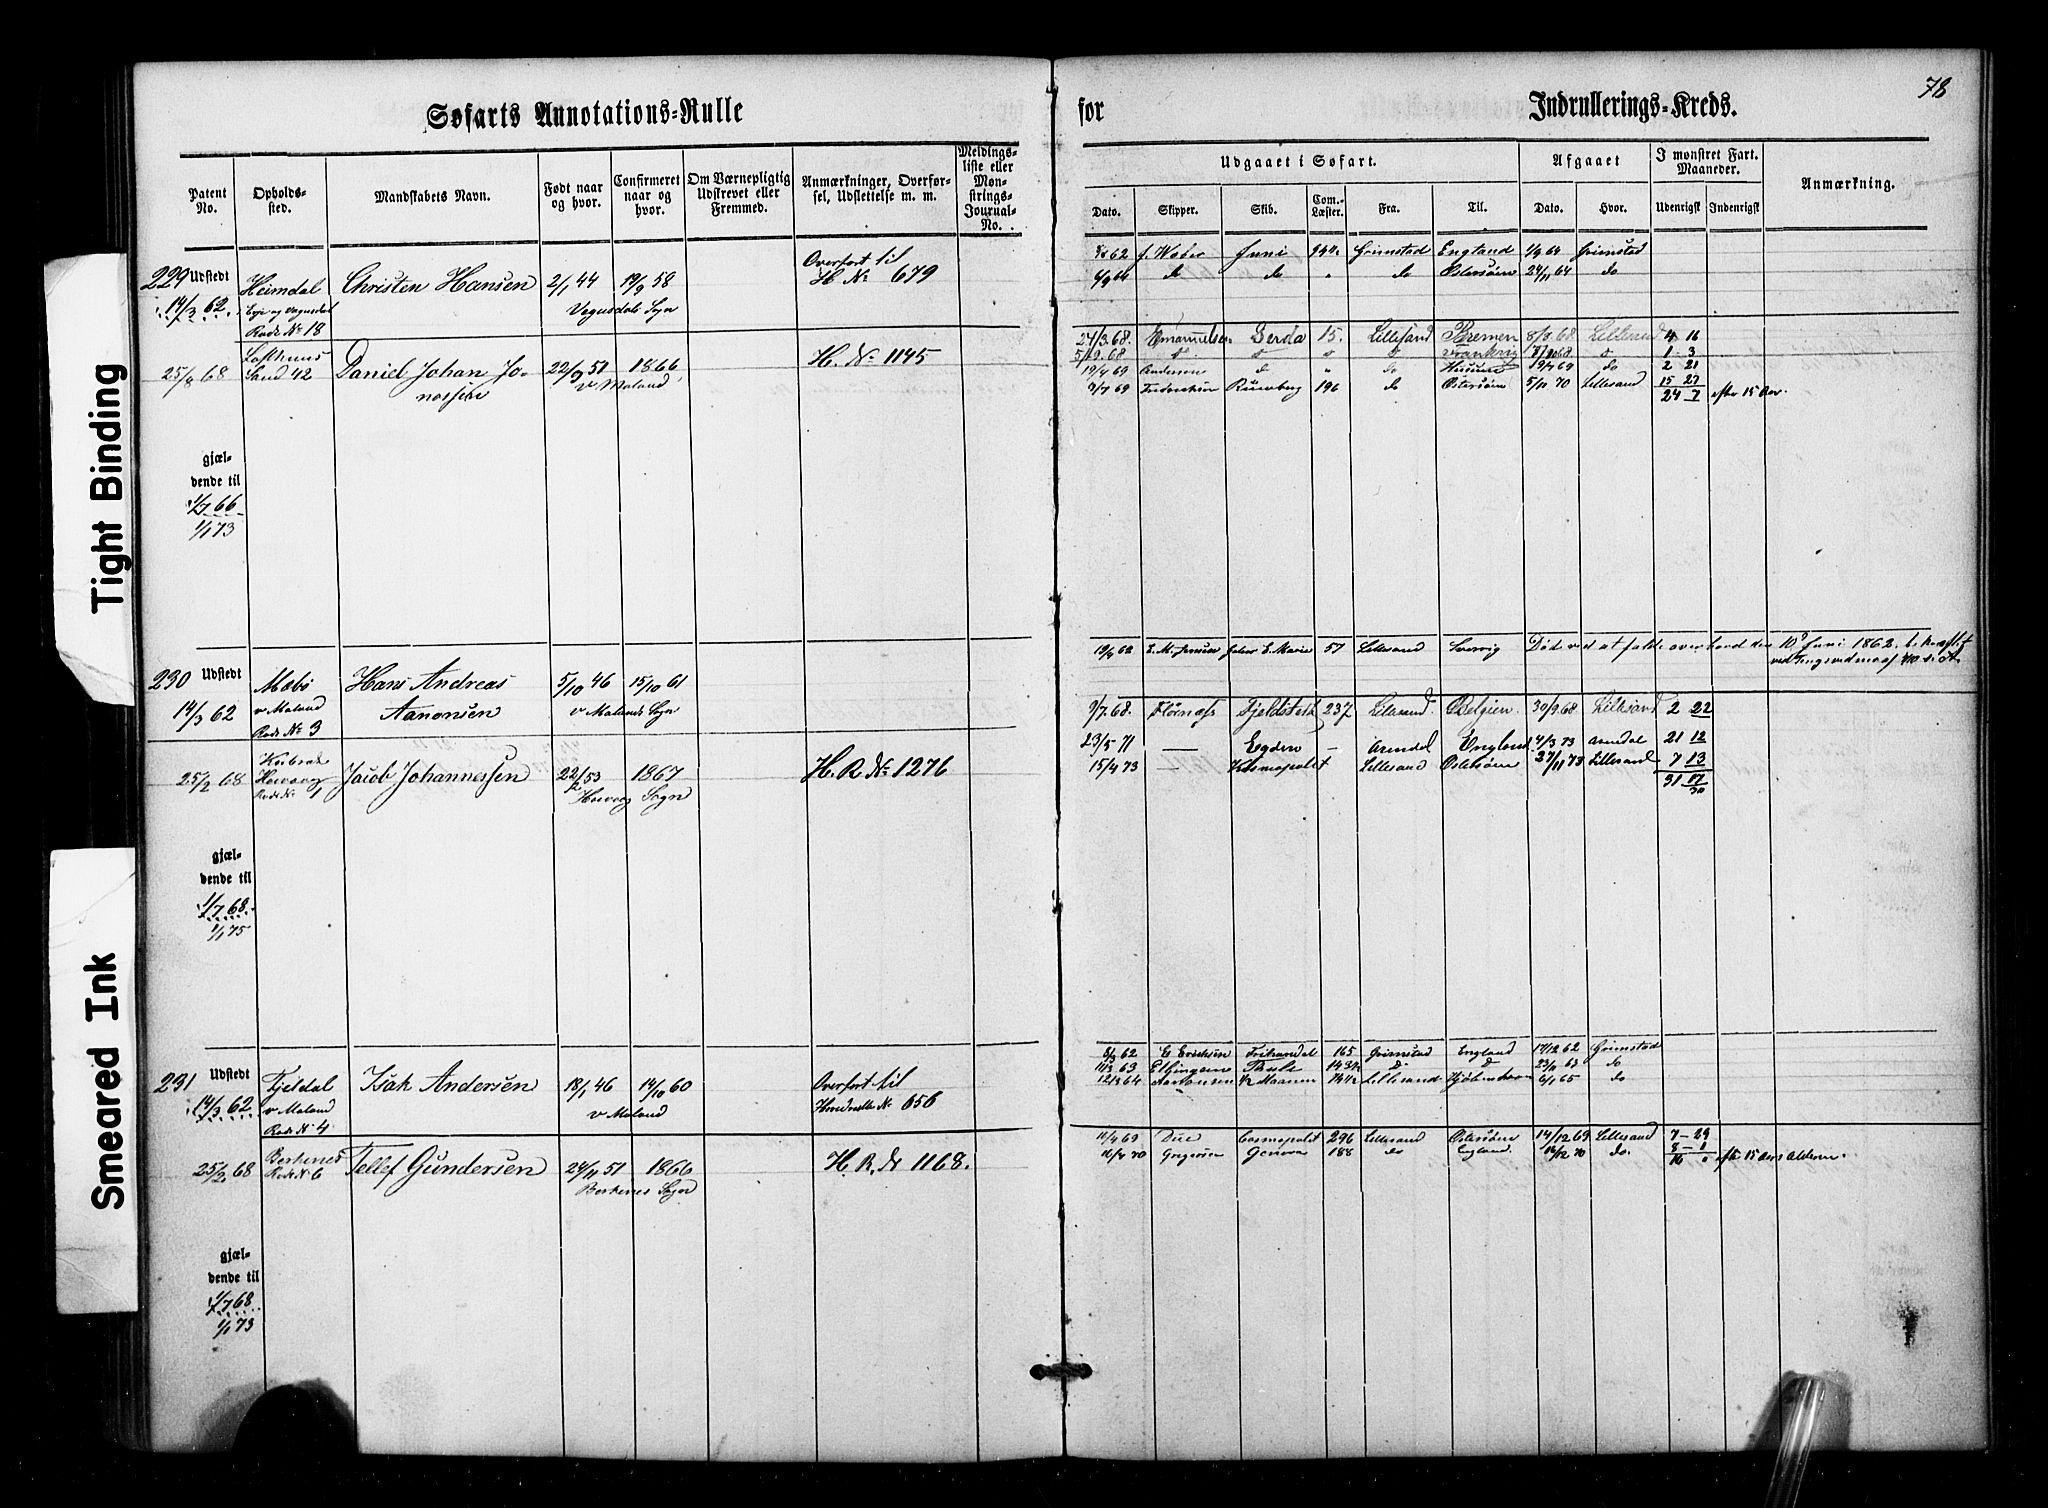 Tight Binding
Smeared Ink
78
Søfarts Annotations-Rulle for Indrullerings-Kreds.
Patent No.
Opholds-sted.
Mandskabets Navn.
Født naar og hvor.
Confirmeret naar og hvor.
Om Værnepligtig Udskrevet eller Fremmed.
Anmærkninger, Overfør-sel, Udslettelse m. m.
Meldings-liste eller Møn-strings-Journal-No.
Udgaaet i Søfart.
Afgaaet
I mønstret Fart. Maaneder.
Anmærkning.
Dato. Skipper. Skib. Com.-Læster. Fra. Til. Dato. Hvor. Udenrigst Indenrigst
229 Udstedt 14/3 62
Heimdal
Rode No 18
Christen Hansen
2/1 44
19/9 58
Vegusdals Sogn
Overført til
H No 679
62 Juni Grimstad England 1/9 64 Grimstad
do do " do Østersøen 24/11 64 do
25/2 68
Sand 42
Daniel Johan Jo-
nassen
22/9 51
1866
v Moland
H. No 1145
24/3 68. Emanuelsen Gerda 15. Lillesand Bremen 8/8 68 Lillesand 4 16
1 3
19/4 69 Andersen do " do Husum 19/7 69 do 2 21
9/7 69 196 do Østersøen 5/11 70 Lillesand 15 27
24 7 efter 15 Aar.
gjæl-
dende til
1/7 66
1/1 73
230 Udstedt 14/3 62
Mæbø
v Moland
Rode No 3
Hans Andreas
Aanonsen
5/10 46
15/10 61
v Molands Sogn
62 E. M. Jensen E. Marie 57 Lillesand Død ved at falde overbord den 10de Juni 1862
25/2 68
Høvaag
Rode No 1
Jacob Johannessen
22/2 53
1867
Høvaag Sogn
H. R. No 1276
9/7 68. Fjeldstedt 237 Lillesand. Belgien. 30/9 68 Lillesand 2 22
23/5 71 — Egden – Arendal England 4/3 73 Arendal 21 12
15/4 73 — Kosmopolit Lillesand Østersøen 27/11 73 Lillesand 7 13
31 17
30
gjæl-
dende til
1/7 68.
1/1 75
231 Udstedt 14/3 62
Fjeldal
v Moland
Rode No 4
Isak Andersen
18/1 46
14/10 60
v Moland
Overført til
Hovedrulle No 656
8/3 62 E. Eriksen Frihandel 165 Grimstad England 17/12 62 Grimstad
11/3 63 do
12/3 64 Lillesand Kjøbenhavn 6/1 65 do
25/2 68
Berkenes
Rode No 6
Tellef Gundersen
24/11 51
1866
Berkenes Sogn
H. R. No 1168.
11/4 69 Due Cosmopolit 296 Lillesand Østersøen 14/12 69 Lillesand 7 – 29
70 Gregersen Genova 188 do England 70 do. 8 – 1
16 0 efter 15 Aars Alderen.
gjæl-
dende til
1/7 68
1/1 73